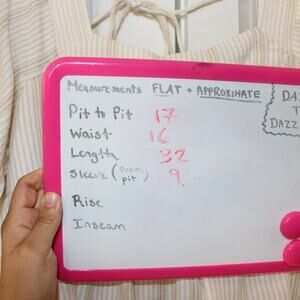 Measurements FLAT + APPROXIMATE
Pit to Pit 17
Waist 16
Length 32
Sleeve (from pit) 9
Rise
Inseam
DAZZ